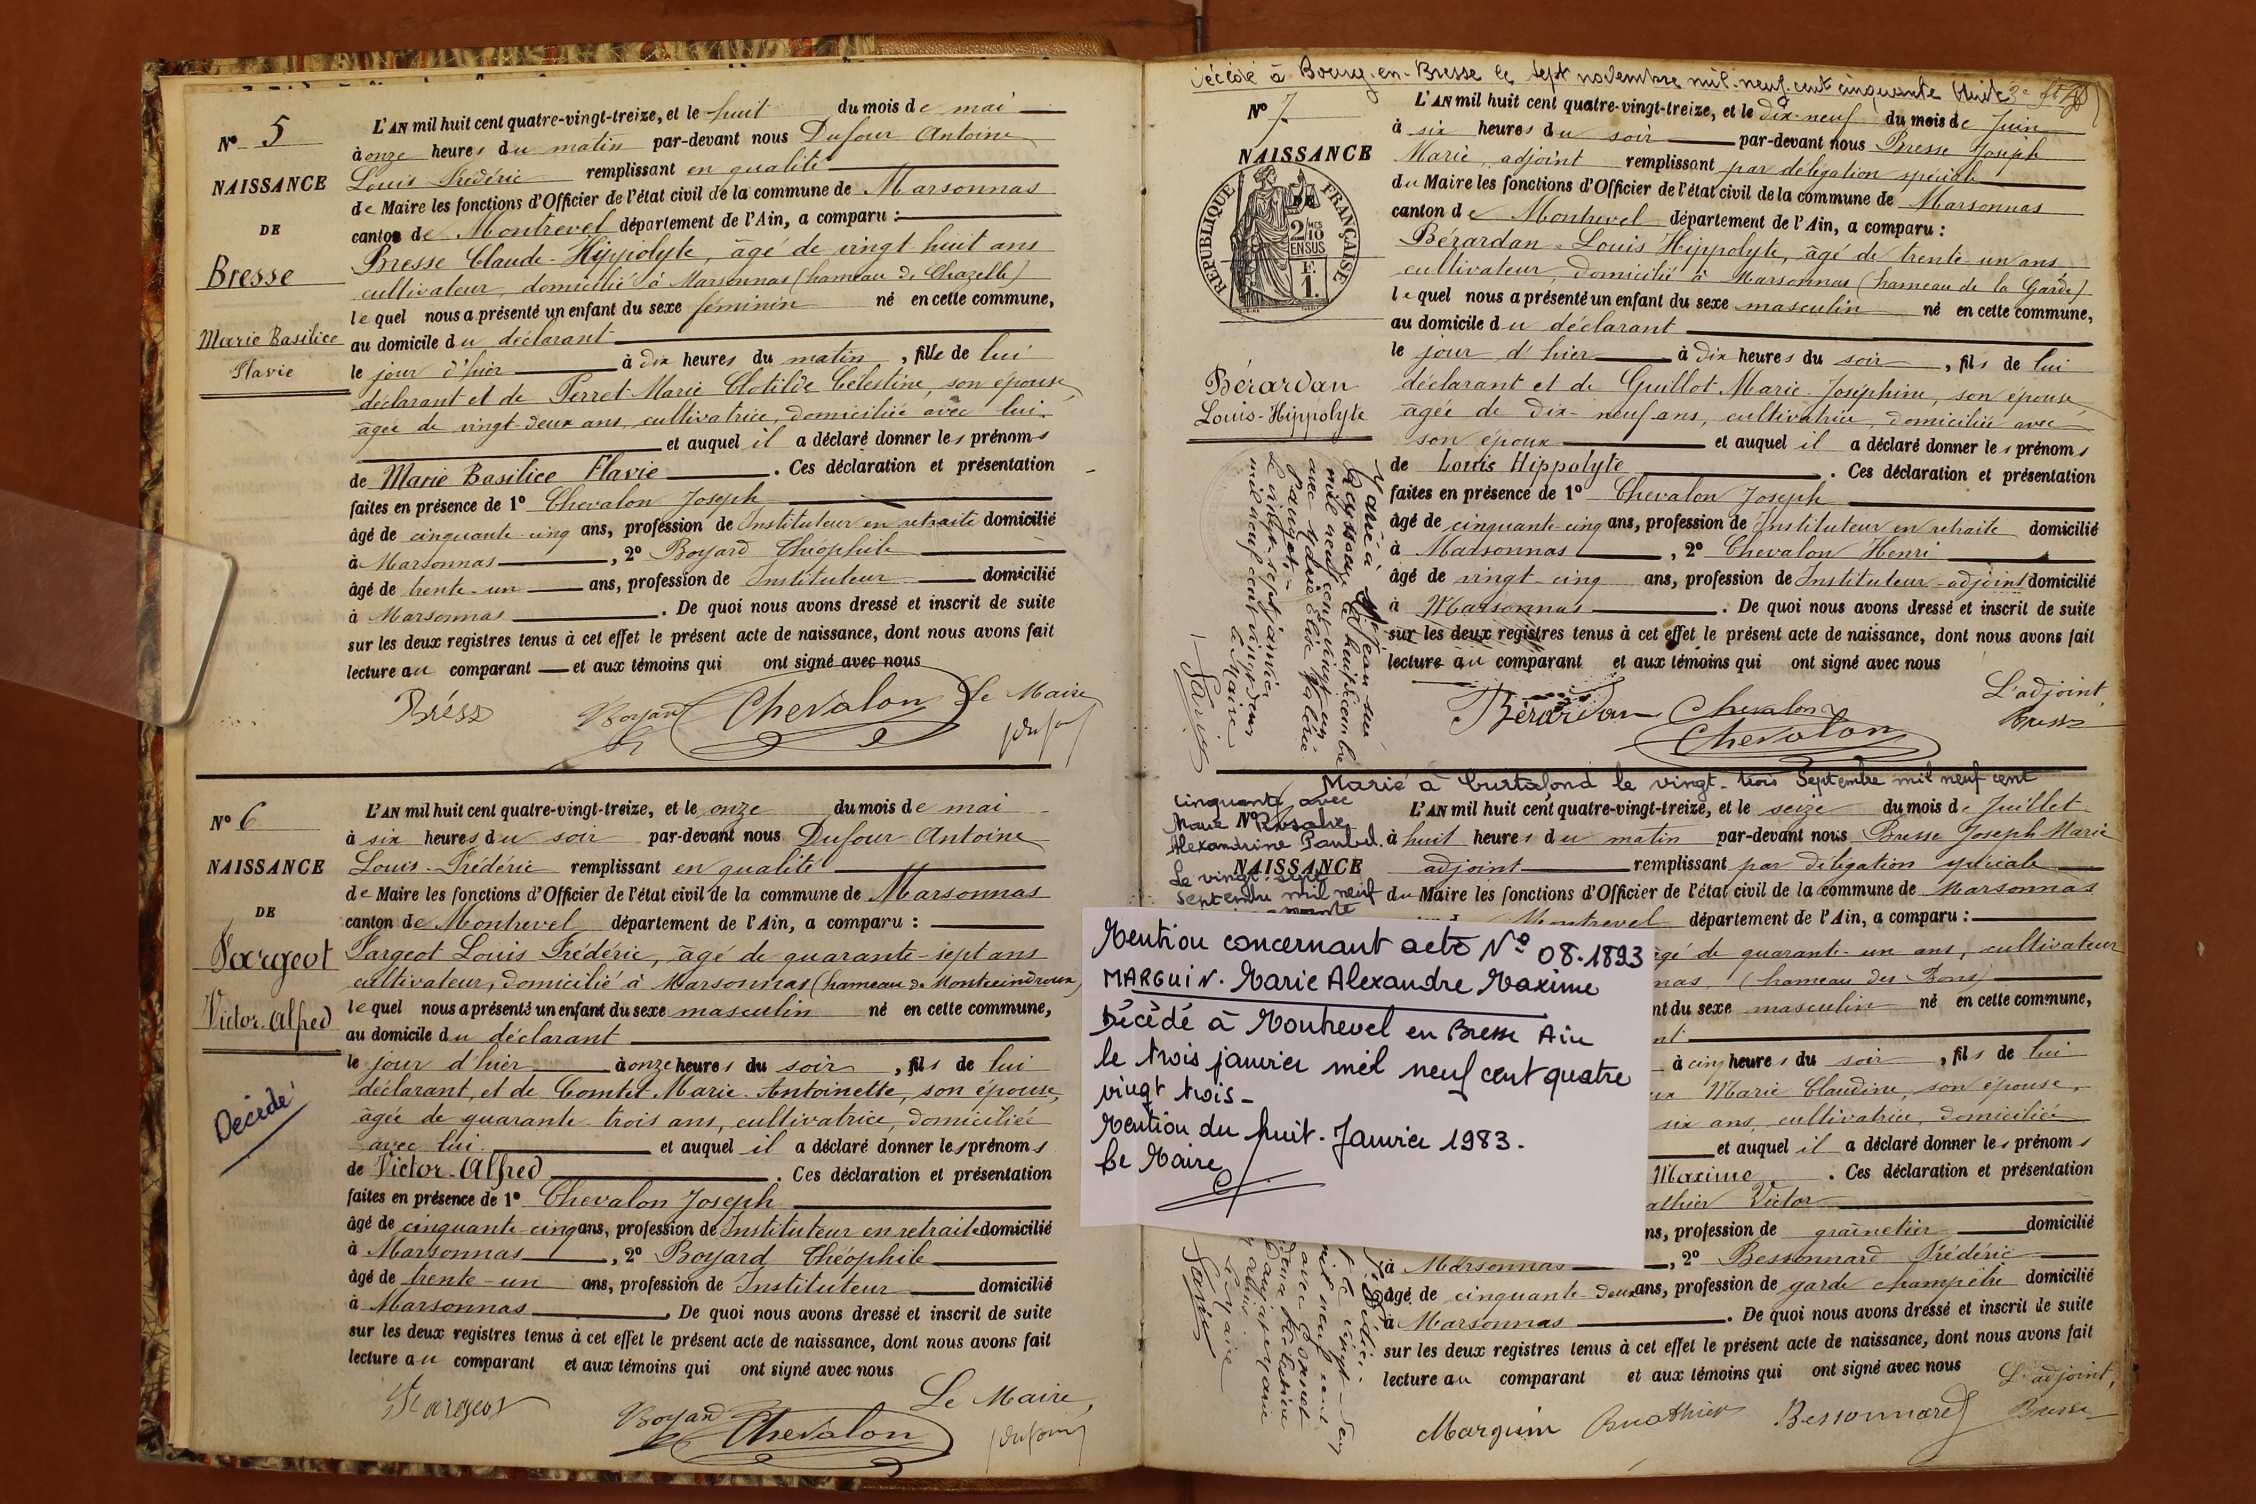 N° 5
NAISSANCE
DE
Bresse
Marie Basilice
Flavie
L'AN mil huit cent quatre-vingt-treize, et le huit du mois de mai
à onze heures du matin par-devant nous Dufour Antoine
Louis Frédéric remplissant en qualité
de Maire les fonctions d'Officier de l'état civil de la commune de Marsonnas
canton de Montrevel département de l'Ain, a comparu :
Bresse Claude-Hippolyte, âgé de vingt-huit ans
cultivateur, domicilié à Marsonnas (hameau de Chazelle)
lequel nous a présenté un enfant du sexe féminin né en cette commune,
au domicile du déclarant
le jour d'hier à dix heures du matin, fille de lui
déclarant et de Perret Marie Clotilde Célestine, son épouse,
âgée de vingt-deux ans, cultivatrice, domiciliée avec lui
et auquel il a déclaré donner les prénoms
de Marie Basilice Flavie. Ces déclaration et présentation
faites en présence de 1° Chevalon Joseph
âgé de cinquante-cinq ans, profession de Instituteur en retraite domicilié
à Marsonnas, 2° Boyard Théophile
âgé de trente-un ans, profession de Instituteur domicilié
à Marsonnas. De quoi nous avons dressé et inscrit de suite
sur les deux registres tenus à cet effet le présent acte de naissance, dont nous avons fait
lecture au comparant et aux témoins qui ont signé avec nous
Le Maire
Bresse Boyard Chevalon Dufour
N° 6
NAISSANCE
DE
Fargeot
Victor-Alfred
Décédé
L'AN mil huit cent quatre-vingt-treize, et le onze du mois de mai
à six heures du soir par-devant nous Dufour Antoine
Louis-Frédéric remplissant en qualité
de Maire les fonctions d'Officier de l'état civil de la commune de Marsonnas
canton de Montrevel département de l'Ain, a comparu :
Fargeot Louis Frédéric, âgé de quarante-sept ans
cultivateur, domicilié à Marsonnas (hameau de Montceindroux)
lequel nous a présenté un enfant du sexe masculin né en cette commune,
au domicile du déclarant
le jour d'hier à onze heures du soir, fils de lui
déclarant, et de Comtet Marie-Antoinette, son épouse,
âgée de quarante-trois ans, cultivatrice, domiciliée
avec lui et auquel il a déclaré donner les prénoms
de Victor-Alfred. Ces déclaration et présentation
faites en présence de 1° Chevalon Joseph
âgé de cinquante-cinq ans, profession de Instituteur en retraite domicilié
à Marsonnas, 2° Boyard Théophile
âgé de trente-un ans, profession de Instituteur domicilié
à Marsonnas. De quoi nous avons dressé et inscrit de suite
sur les deux registres tenus à cet effet le présent acte de naissance, dont nous avons fait
lecture au comparant et aux témoins qui ont signé avec nous
Le Maire,
Fargeot Boyard Chevalon Dufour
Décédé à Bourg-en-Bresse le sept novembre mil-neuf-cent cinquante huit
N° 7
NAISSANCE
RÉPUBLIQUE FRANÇAISE
2/10
EN SUS
1 F.
Bérardan
Louis-Hippolyte
L'AN mil huit cent quatre-vingt-treize, et le dix-neuf du mois de Juin
à six heures du soir par-devant nous Bresse Joseph
Marie, adjoint remplissant par délégation spéciale
du Maire les fonctions d'Officier de l'état civil de la commune de Marsonnas
canton de Montrevel département de l'Ain, a comparu :
Bérardan Louis Hippolyte, âgé de trente-un ans
cultivateur, domicilié à Marsonnas (hameau de la Garde)
lequel nous a présenté un enfant du sexe masculin né en cette commune,
au domicile du déclarant
le jour d'hier à dix heures du soir, fils de lui
déclarant et de Guillot Marie-Joséphine, son épouse,
âgée de dix-neuf ans, cultivatrice, domiciliée avec
son époux et auquel il a déclaré donner les prénoms
de Louis Hippolyte. Ces déclaration et présentation
faites en présence de 1° Chevalon Joseph
âgé de cinquante-cinq ans, profession de Instituteur en retraite domicilié
à Marsonnas, 2° Chevalon Henri
âgé de vingt-cinq ans, profession de Instituteur-adjoint domicilié
à Marsonnas. De quoi nous avons dressé et inscrit de suite
sur les deux registres tenus à cet effet le présent acte de naissance, dont nous avons fait
lecture au comparant et aux témoins qui ont signé avec nous
L'adjoint,
Bérardan Chevalon Bresse
Chevalon
Marié à St Jean sur
Reyssouze le
mil neuf cent vingt un
avec
Le vingt-sept janvier
mil neuf cent vingt deux
Le Maire
Marié à Curtafond le vingt-trois Septembre mil neuf cent
cinquante avec
Marie Rosalie
Alexandrine Pauted.
Le vingt-sept
Septembre mil neuf
N°
NAISSANCE
L'AN mil huit cent quatre-vingt-treize, et le seize du mois de Juillet
à huit heures du matin par-devant nous Bresse Joseph Marie
adjoint remplissant par délégation spéciale
du Maire les fonctions d'Officier de l'état civil de la commune de Marsonnas
Montrevel département de l'Ain, a comparu :
âgé de quarante-un ans, cultivateur
(hameau des Bons)
du sexe masculin né en cette commune,
à cinq heures du soir, fils de lui
Marie Claudine, son épouse,
six ans, cultivatrice, domiciliée
et auquel il a déclaré donner les prénoms
Maxime. Ces déclaration et présentation
Victor
ans, profession de grainetier domicilié
à Marsonnas, 2° Bessonnard Frédéric
âgé de cinquante-deux ans, profession de garde champêtre domicilié
à Marsonnas. De quoi nous avons dressé et inscrit de suite
sur les deux registres tenus à cet effet le présent acte de naissance, dont nous avons fait
lecture au comparant et aux témoins qui ont signé avec nous
L'adjoint,
Marguin Buathier Bessonnard Bresse
Mention concernant acte N° 08.1893
MARGUIN. Marie Alexandre Maxime
Décédé à Montrevel en Bresse Ain
le trois janvier mil neuf cent quatre
vingt trois-
Mention du huit. Janvier 1983.
Le Maire